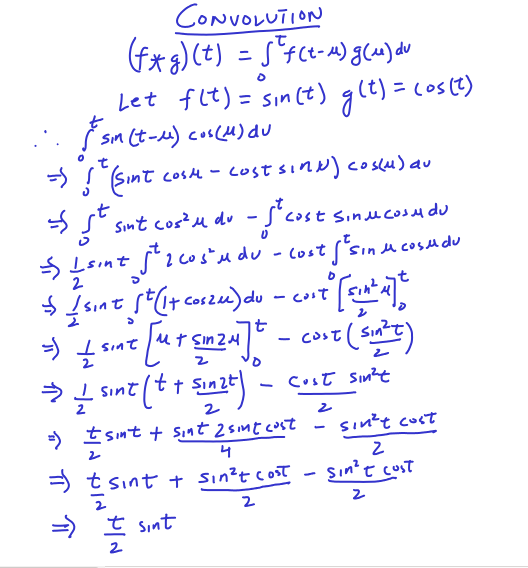 CONVOLUTION
(f*g)(t) = ∫₀ᵗ f(t-u) g(u) du
Let f(t) = sin(t) g(t) = cos(t)
∴ ∫₀ᵗ sin(t-u) cos(u) du
⇒ ∫₀ᵗ (sint cosu - cost sinu) cos(u) du
⇒ ∫₀ᵗ sint cos²u du - ∫₀ᵗ cost sinu cosu du
⇒ 1/2 sint ∫₀ᵗ 2cos²u du - cost ∫₀ᵗ sinu cosu du
⇒ 1/2 sint ∫₀ᵗ (1+cos2u) du - cost [sin²u/2]₀ᵗ
⇒ 1/2 sint [u + sin2u/2]₀ᵗ - cost (sin²t/2)
⇒ 1/2 sint (t + sin2t/2) - cost sin²t/2
⇒ t/2 sint + sint 2sint cost/4 - sin²t cost/2
⇒ t/2 sint + sin²t cost/2 - sin²t cost/2
⇒ t/2 sint